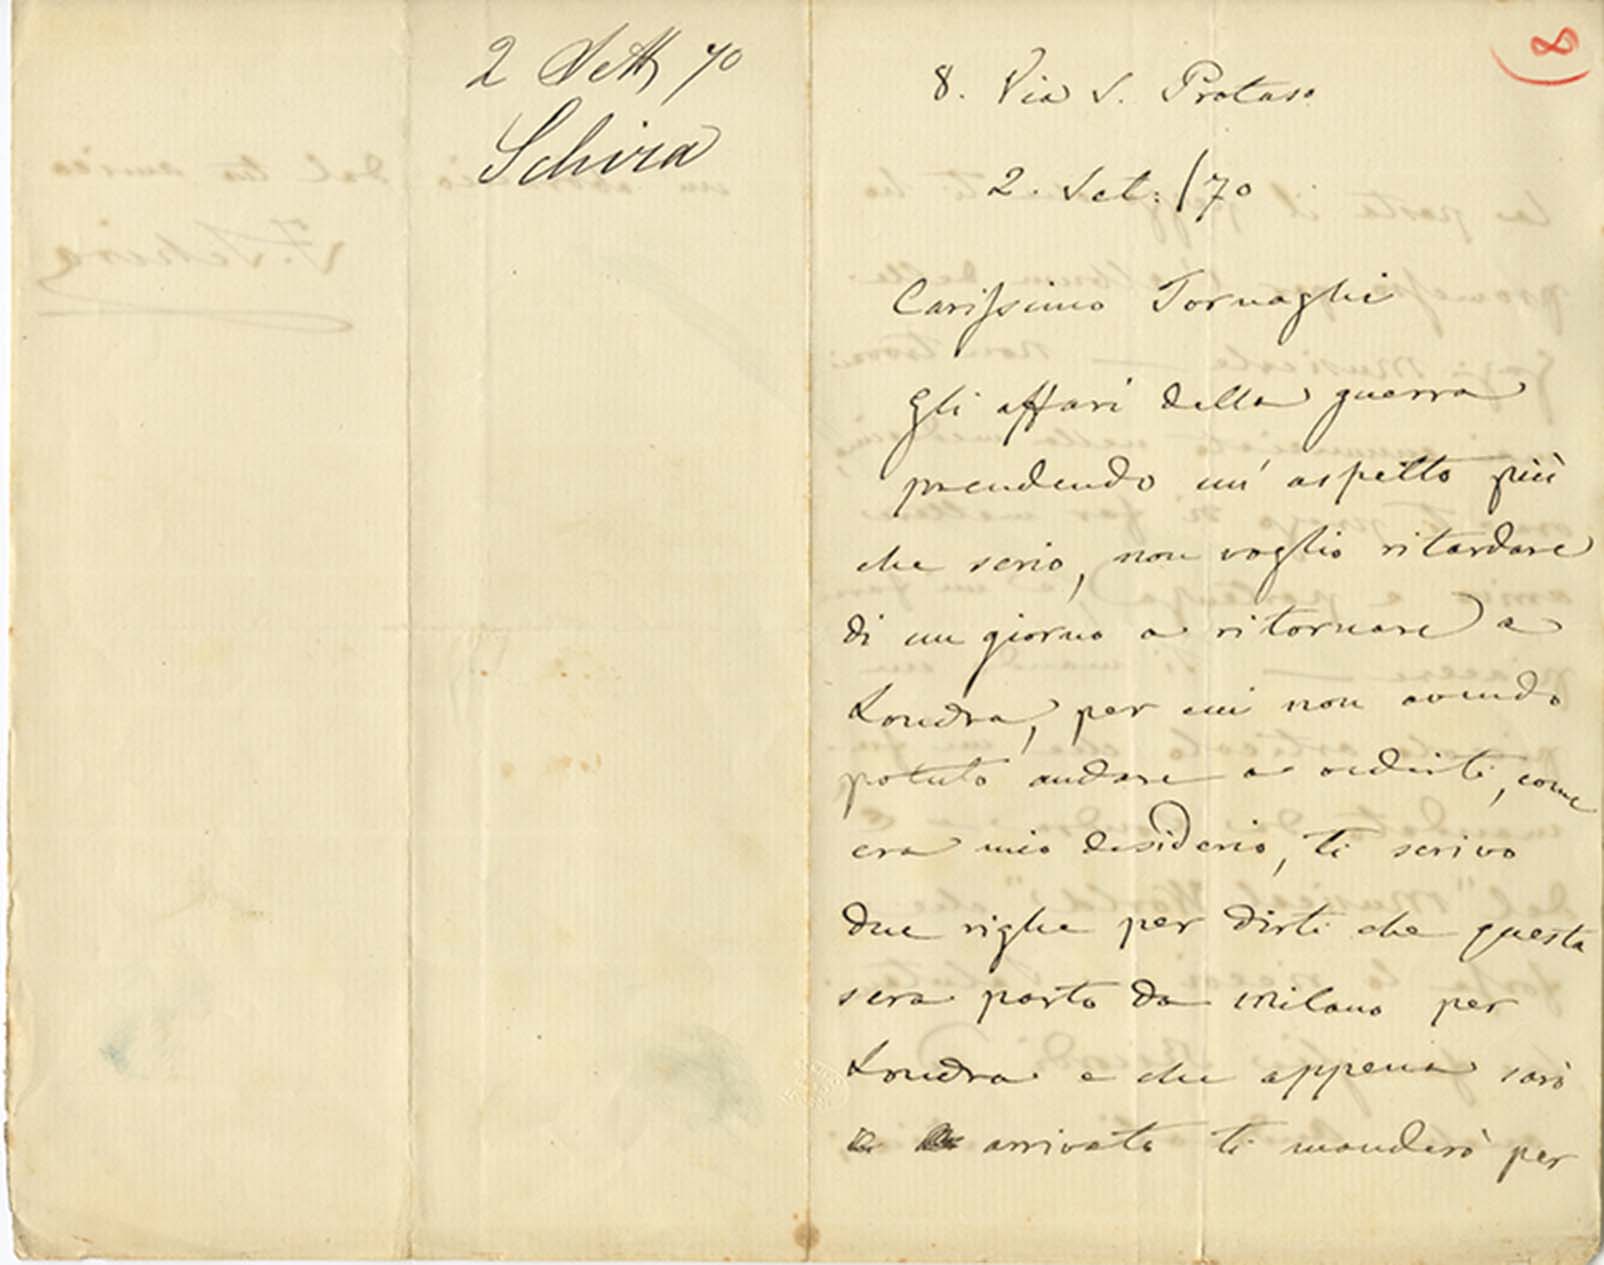 2 Sett 70
Schira
8
8. Via S. Protaso
2. Set: /70
Carissimo Tornaghi
Gli affari della guerra
prendendo un' aspetto più
che serio, non voglio ritardare
di un giorno a ritornare a
Londra, per cui non avendo
potuto andare a vederti, come
era mio desiderio, ti scrivo
due righe per dirti che questa
sera parto da Milano per
Londra e che appena sarò
arrivato ti manderò per